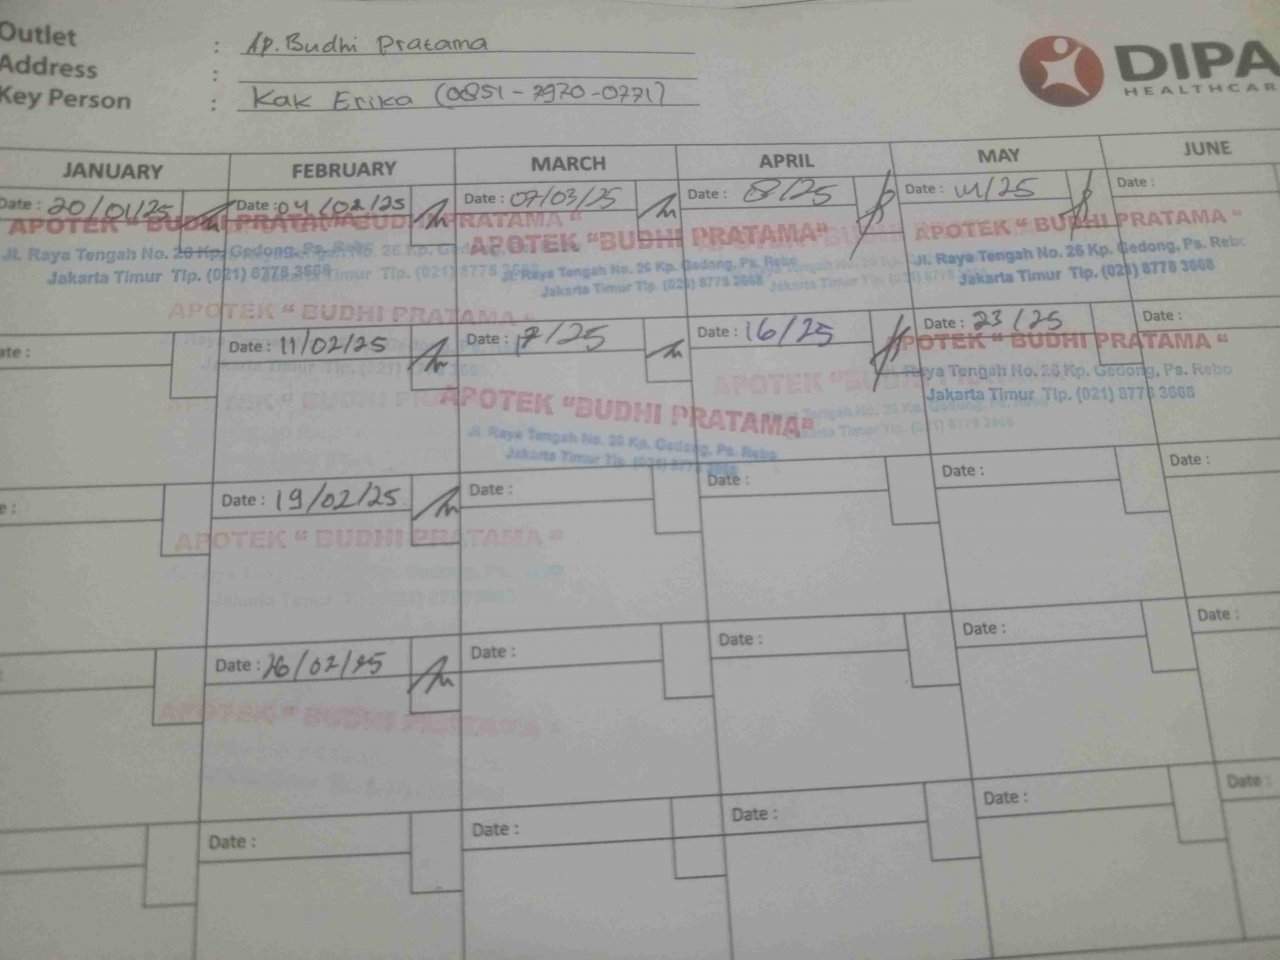 Outlet : Ap. Budhi Pratama
Address :
Key Person : Kak Erika (0851-7970-0771)
DIPA
HEALTHCAR
JANUARY FEBRUARY MARCH APRIL MAY JUNE
Date : 20/01/25 Date : 04/02/25 Date : 07/03/25 Date : 8/25 Date : /25 Date :
APOTEK " BUDHI PRATAMA BUDHI PRATAMA " APOTEK "BUDHI PRATAMA" APOTEK " BUDHI PRATAMA "
Jl. Raya Tengah No. 26 Kp. Gedong, Ps. Rebo 26 Kp. Jl. Raya Tengah No. 26 Kp. Gedong, Ps. Rebo Jl. Raya Tengah No. 26 Kp. Gedong, Ps. Rebo
Jakarta Timur Tlp. (021) 8778 3668 Timur Tlp. (021) 8778 Jakarta Timur Tlp. (021) 8778 3668 Jakarta Timur Tlp. (021) 8778 3668
APOTEK " BUDHI PRATAMA "
ate : Date : 11/02/25 Date : 17/25 Date : 16/25 Date : 23/25 Date :
POTEK " BUDHI PRATAMA "
Raya Tengah No. 26 Kp. Gedong, Ps. Rebo
Jakarta Timur Tlp. (021) 8778 3668
APOTEK "BUDHI PRATAMA"
Jl. Raya Tengah No. 26 Kp. Gedong, Ps. Rebo
Jakarta Timur Tlp. (021) 8778 3668
e : Date : 19/02/25 Date : Date : Date : Date :
APOTEK " BUDHI PRATAMA "
: Date : 26/02/25 Date : Date : Date : Date :
APOTEK " BUDHI PRATAMA "
Date : Date : Date : Date : Date :